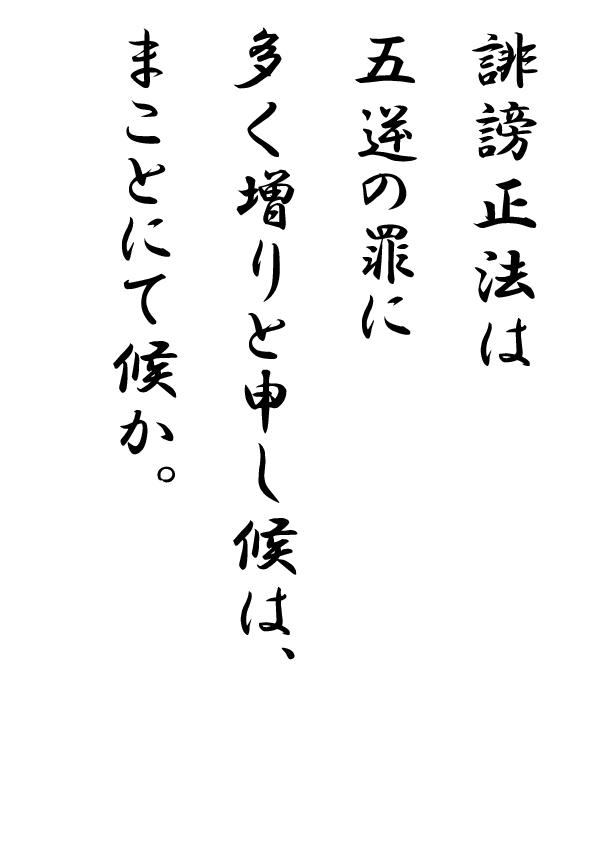 誹謗正法は
五逆の罪に
多く増りと申し候は、
まことにて候か。